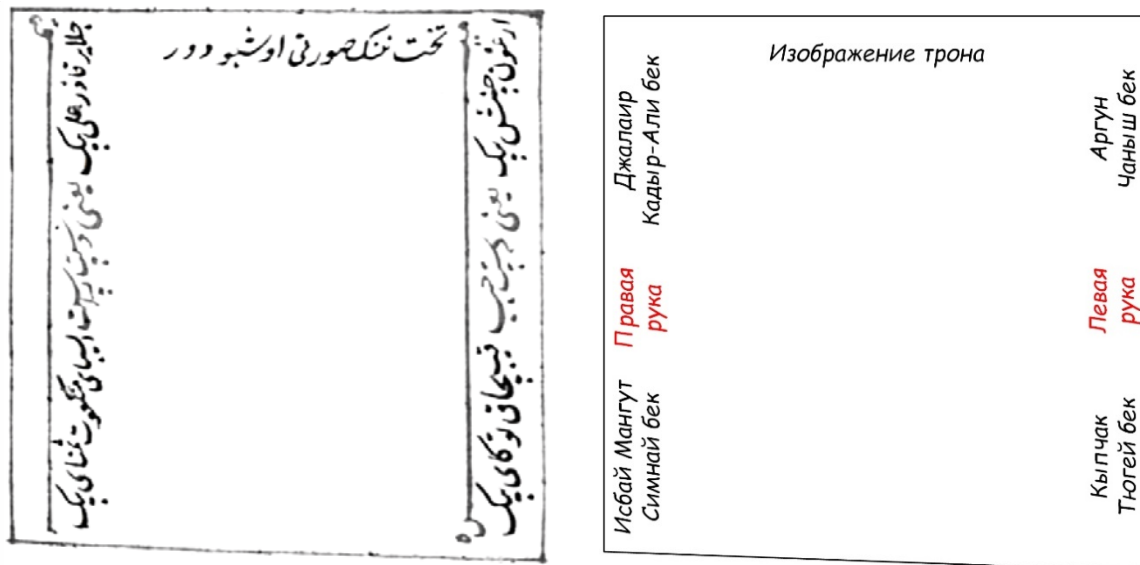 تخت ننک صورتی اوشبو دور
جلایر قادر علی بیک یعنی دست راست ایسبای منکقوت بیک
ارغون چنش بیک یعنی دست چپ قیپچاق توکای بیک
Изображение трона
Джалаир
Кадыр-Али бек
Правая
рука
Исбай Мангут
Симнай бек
Аргун
Чаныш бек
Левая
рука
Кыпчак
Тюгей бек